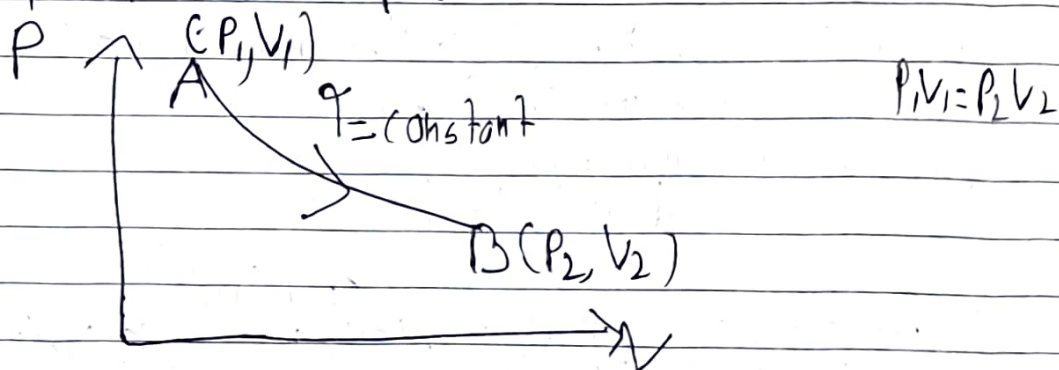 P (P₁,V₁)
A
T=constant
P₁V₁=P₂V₂
B(P₂, V₂)
V